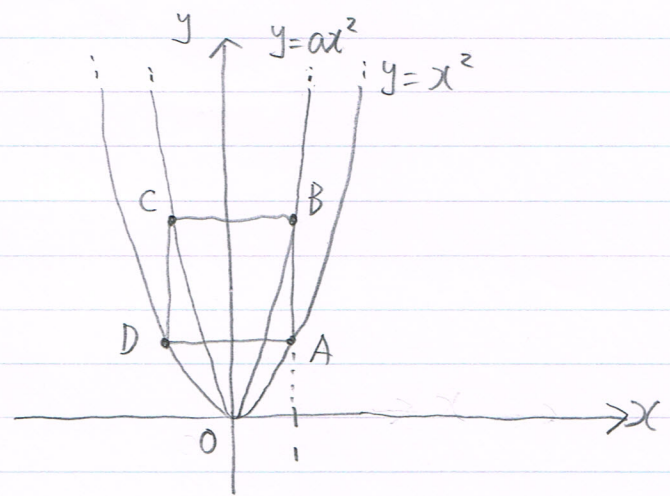 y
y=ax²
y=x²
C
B
D
A
O
x
1